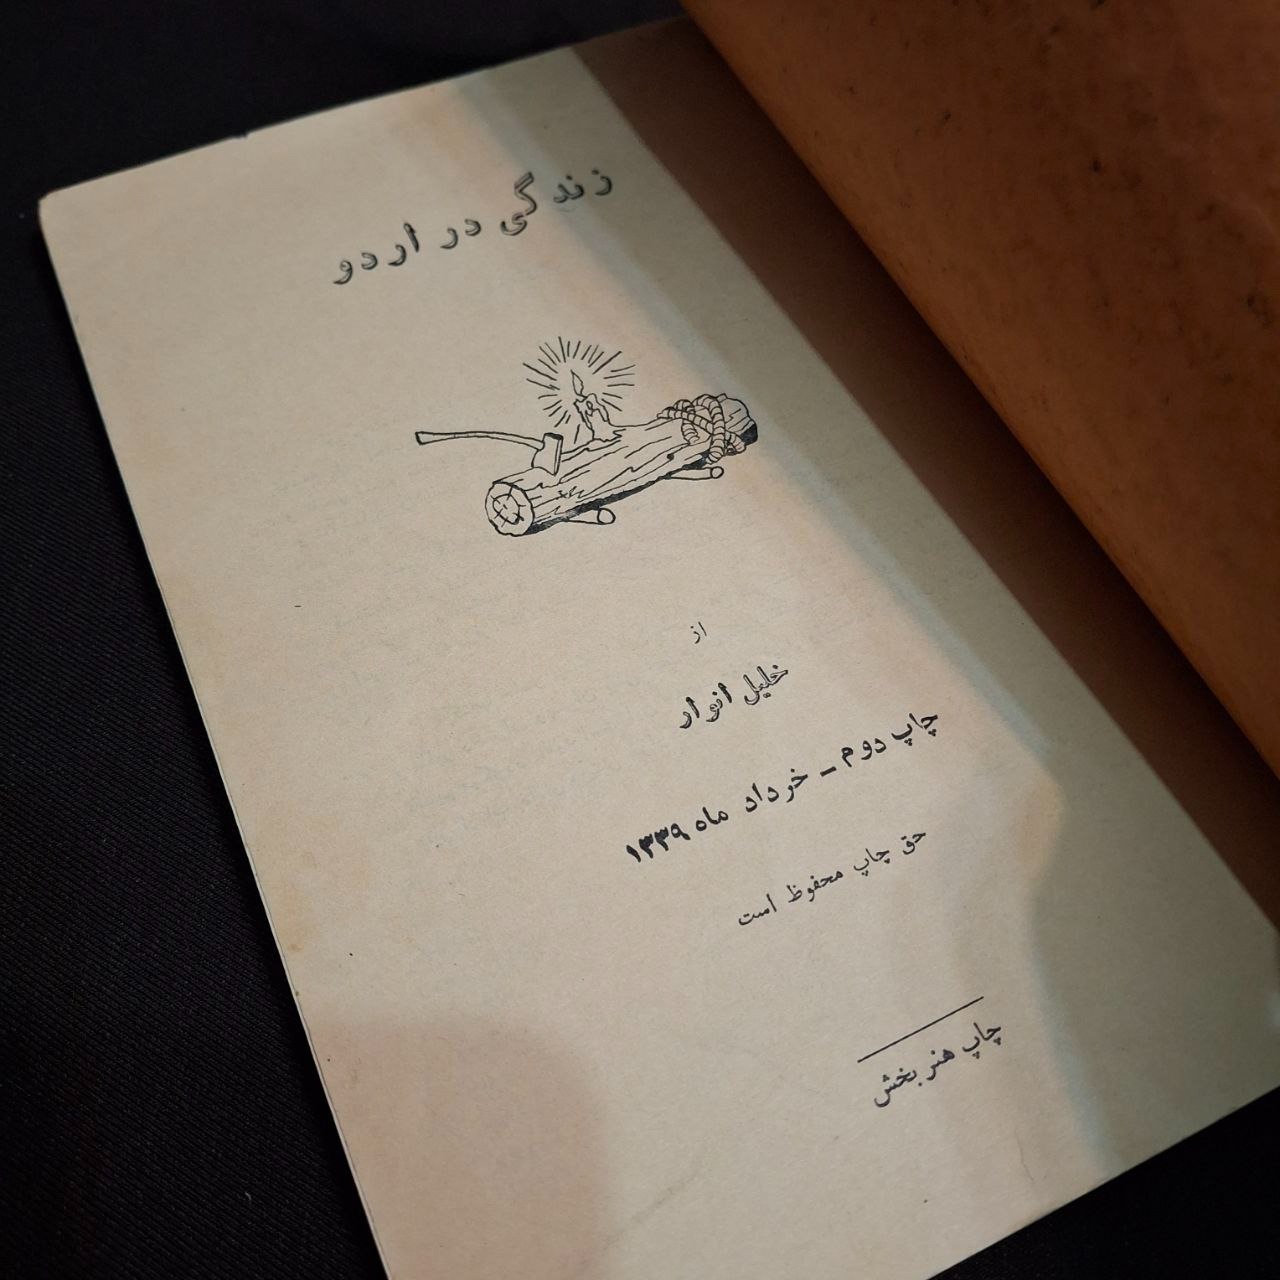 زندگی در اردو
از
خلیل انوار
چاپ دوم - خرداد ماه ۱۳۳۹
حق چاپ محفوظ است
چاپ هنربخش